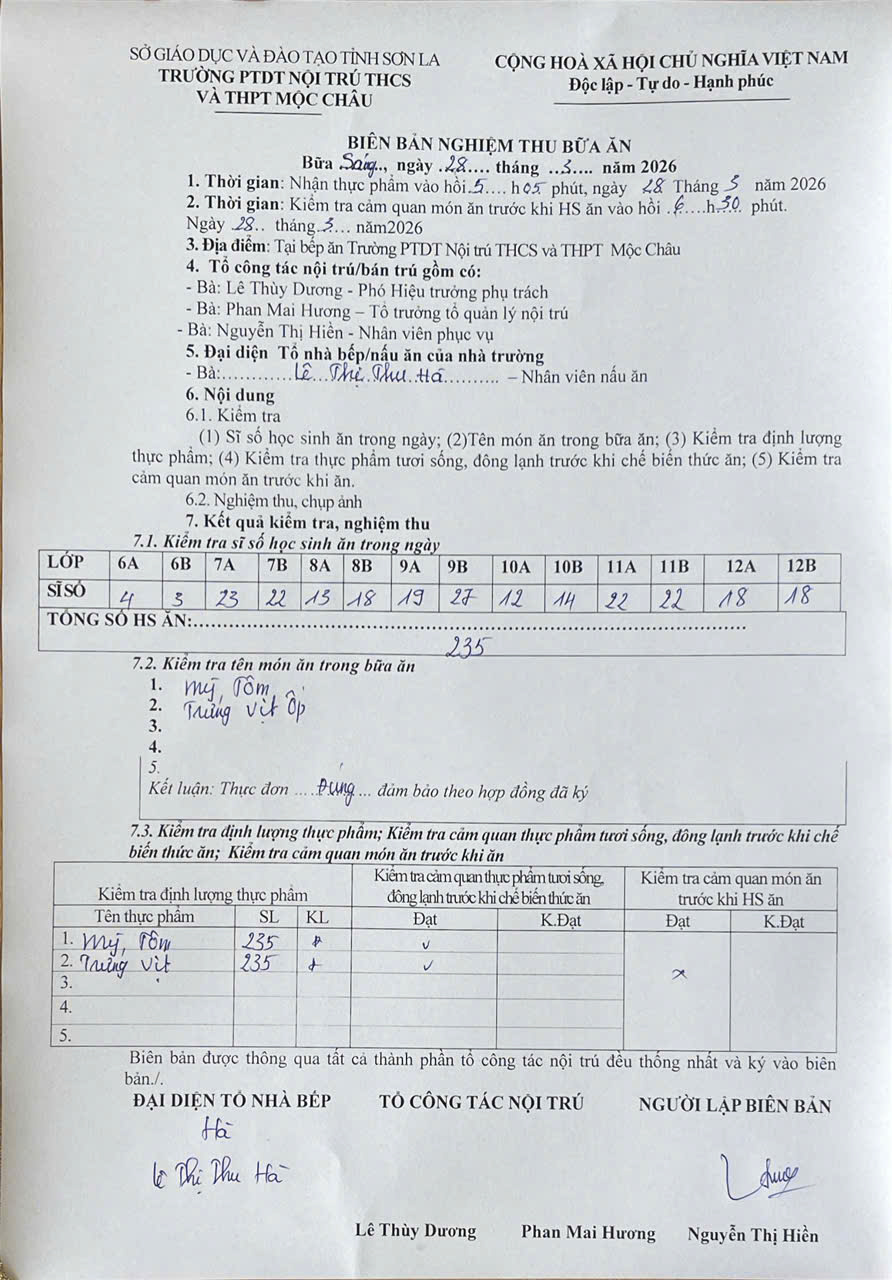 SỞ GIÁO DỤC VÀ ĐÀO TẠO TỈNH SƠN LA
TRƯỜNG PTDT NỘI TRÚ THCS
VÀ THPT MỘC CHÂU
CỘNG HOÀ XÃ HỘI CHỦ NGHĨA VIỆT NAM
Độc lập - Tự do - Hạnh phúc
BIÊN BẢN NGHIỆM THU BỮA ĂN
Bữa Sáng.., ngày .28.... tháng ..3.... năm 2026
1. Thời gian: Nhận thực phẩm vào hồi.5.... h05 phút, ngày 28 Tháng 3 năm 2026
2. Thời gian: Kiểm tra cảm quan món ăn trước khi HS ăn vào hồi .6....h.30... phút.
Ngày .28.. tháng.3... năm2026
3. Địa điểm: Tại bếp ăn Trường PTDT Nội trú THCS và THPT Mộc Châu
4. Tổ công tác nội trú/bán trú gồm có:
- Bà: Lê Thùy Dương - Phó Hiệu trưởng phụ trách
- Bà: Phan Mai Hương – Tổ trưởng tổ quản lý nội trú
- Bà: Nguyễn Thị Hiền - Nhân viên phục vụ
5. Đại diện Tổ nhà bếp/nấu ăn của nhà trường
- Bà:...........Lê...Thị.Thu.Hà.......... – Nhân viên nấu ăn
6. Nội dung
6.1. Kiểm tra
(1) Sĩ số học sinh ăn trong ngày; (2)Tên món ăn trong bữa ăn; (3) Kiểm tra định lượng
thực phẩm; (4) Kiểm tra thực phẩm tươi sống, đông lạnh trước khi chế biến thức ăn; (5) Kiểm tra
cảm quan món ăn trước khi ăn.
6.2. Nghiệm thu, chụp ảnh
7. Kết quả kiểm tra, nghiệm thu
7.1. Kiểm tra sĩ số học sinh ăn trong ngày
LỚP 6A 6B 7A 7B 8A 8B 9A 9B 10A 10B 11A 11B 12A 12B
SĨ SỐ 4 3 23 22 13 18 19 27 12 14 22 22 18 18
TỔNG SỐ HS ĂN:..........................................................................................
235
7.2. Kiểm tra tên món ăn trong bữa ăn
1. Mỳ, Tôm
2. Trứng vịt ốp
3.
4.
5.
Kết luận: Thực đơn ....Đúng... đảm bảo theo hợp đồng đã ký
7.3. Kiểm tra định lượng thực phẩm; Kiểm tra cảm quan thực phẩm tươi sống, đông lạnh trước khi chế
biến thức ăn; Kiểm tra cảm quan món ăn trước khi ăn
Kiểm tra định lượng thực phẩm
Kiểm tra cảm quan thực phẩm tươi sống,
đông lạnh trước khi chế biến thức ăn
Kiểm tra cảm quan món ăn
trước khi HS ăn
Tên thực phẩm SL KL Đạt K.Đạt Đạt K.Đạt
1. Mỳ, Tôm 235 + ✓
2. Trứng vịt 235 + ✓ x
3.
4.
5.
Biên bản được thông qua tất cả thành phần tổ công tác nội trú đều thống nhất và ký vào biên
bản./.
ĐẠI DIỆN TỔ NHÀ BẾP TỔ CÔNG TÁC NỘI TRÚ NGƯỜI LẬP BIÊN BẢN
Hà
Lê Thị Thu Hà
Lê Thùy Dương Phan Mai Hương Nguyễn Thị Hiền